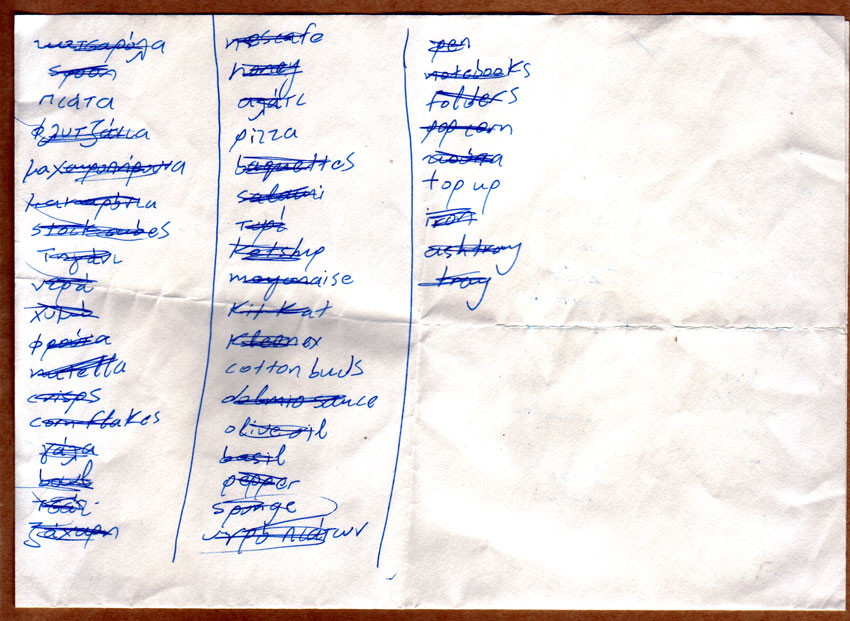 κατσαρόλα
spoon
πιάτα
φλυτζάνια
μαχαιροπήρουνα
μακαρόνια
stock cubes
Τηγάνι
νερά
χυμό
φρούτα
nutella
crisps
corn flakes
γάλα
bowl
τσάι
ζάχαρη
nescafe
honey
αλάτι
pizza
baguettes
salami
τυρί
ketshup
mayonaise
Kit Kat
Kleenex
cotton buds
dolmio sauce
olive oil
basil
pepper
sponge
υγρό πιάτων
pen
notebooks
folders
pop corn
top up
iron
ashtray
tray